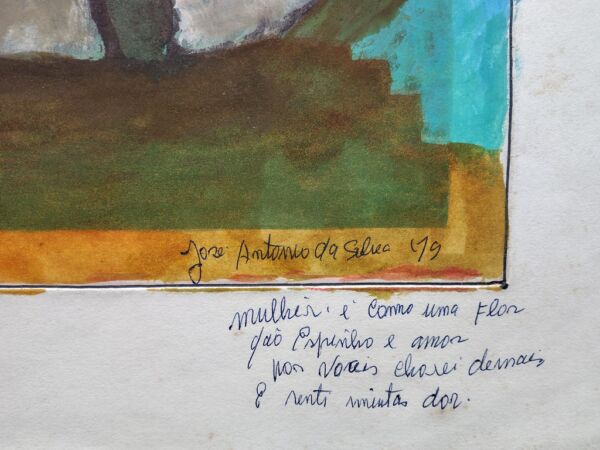 José Antonio da Silva 79
mulher. é Como uma Flor
dão Espinho e amor
por voceis chorei demais
E senti muintas dor.